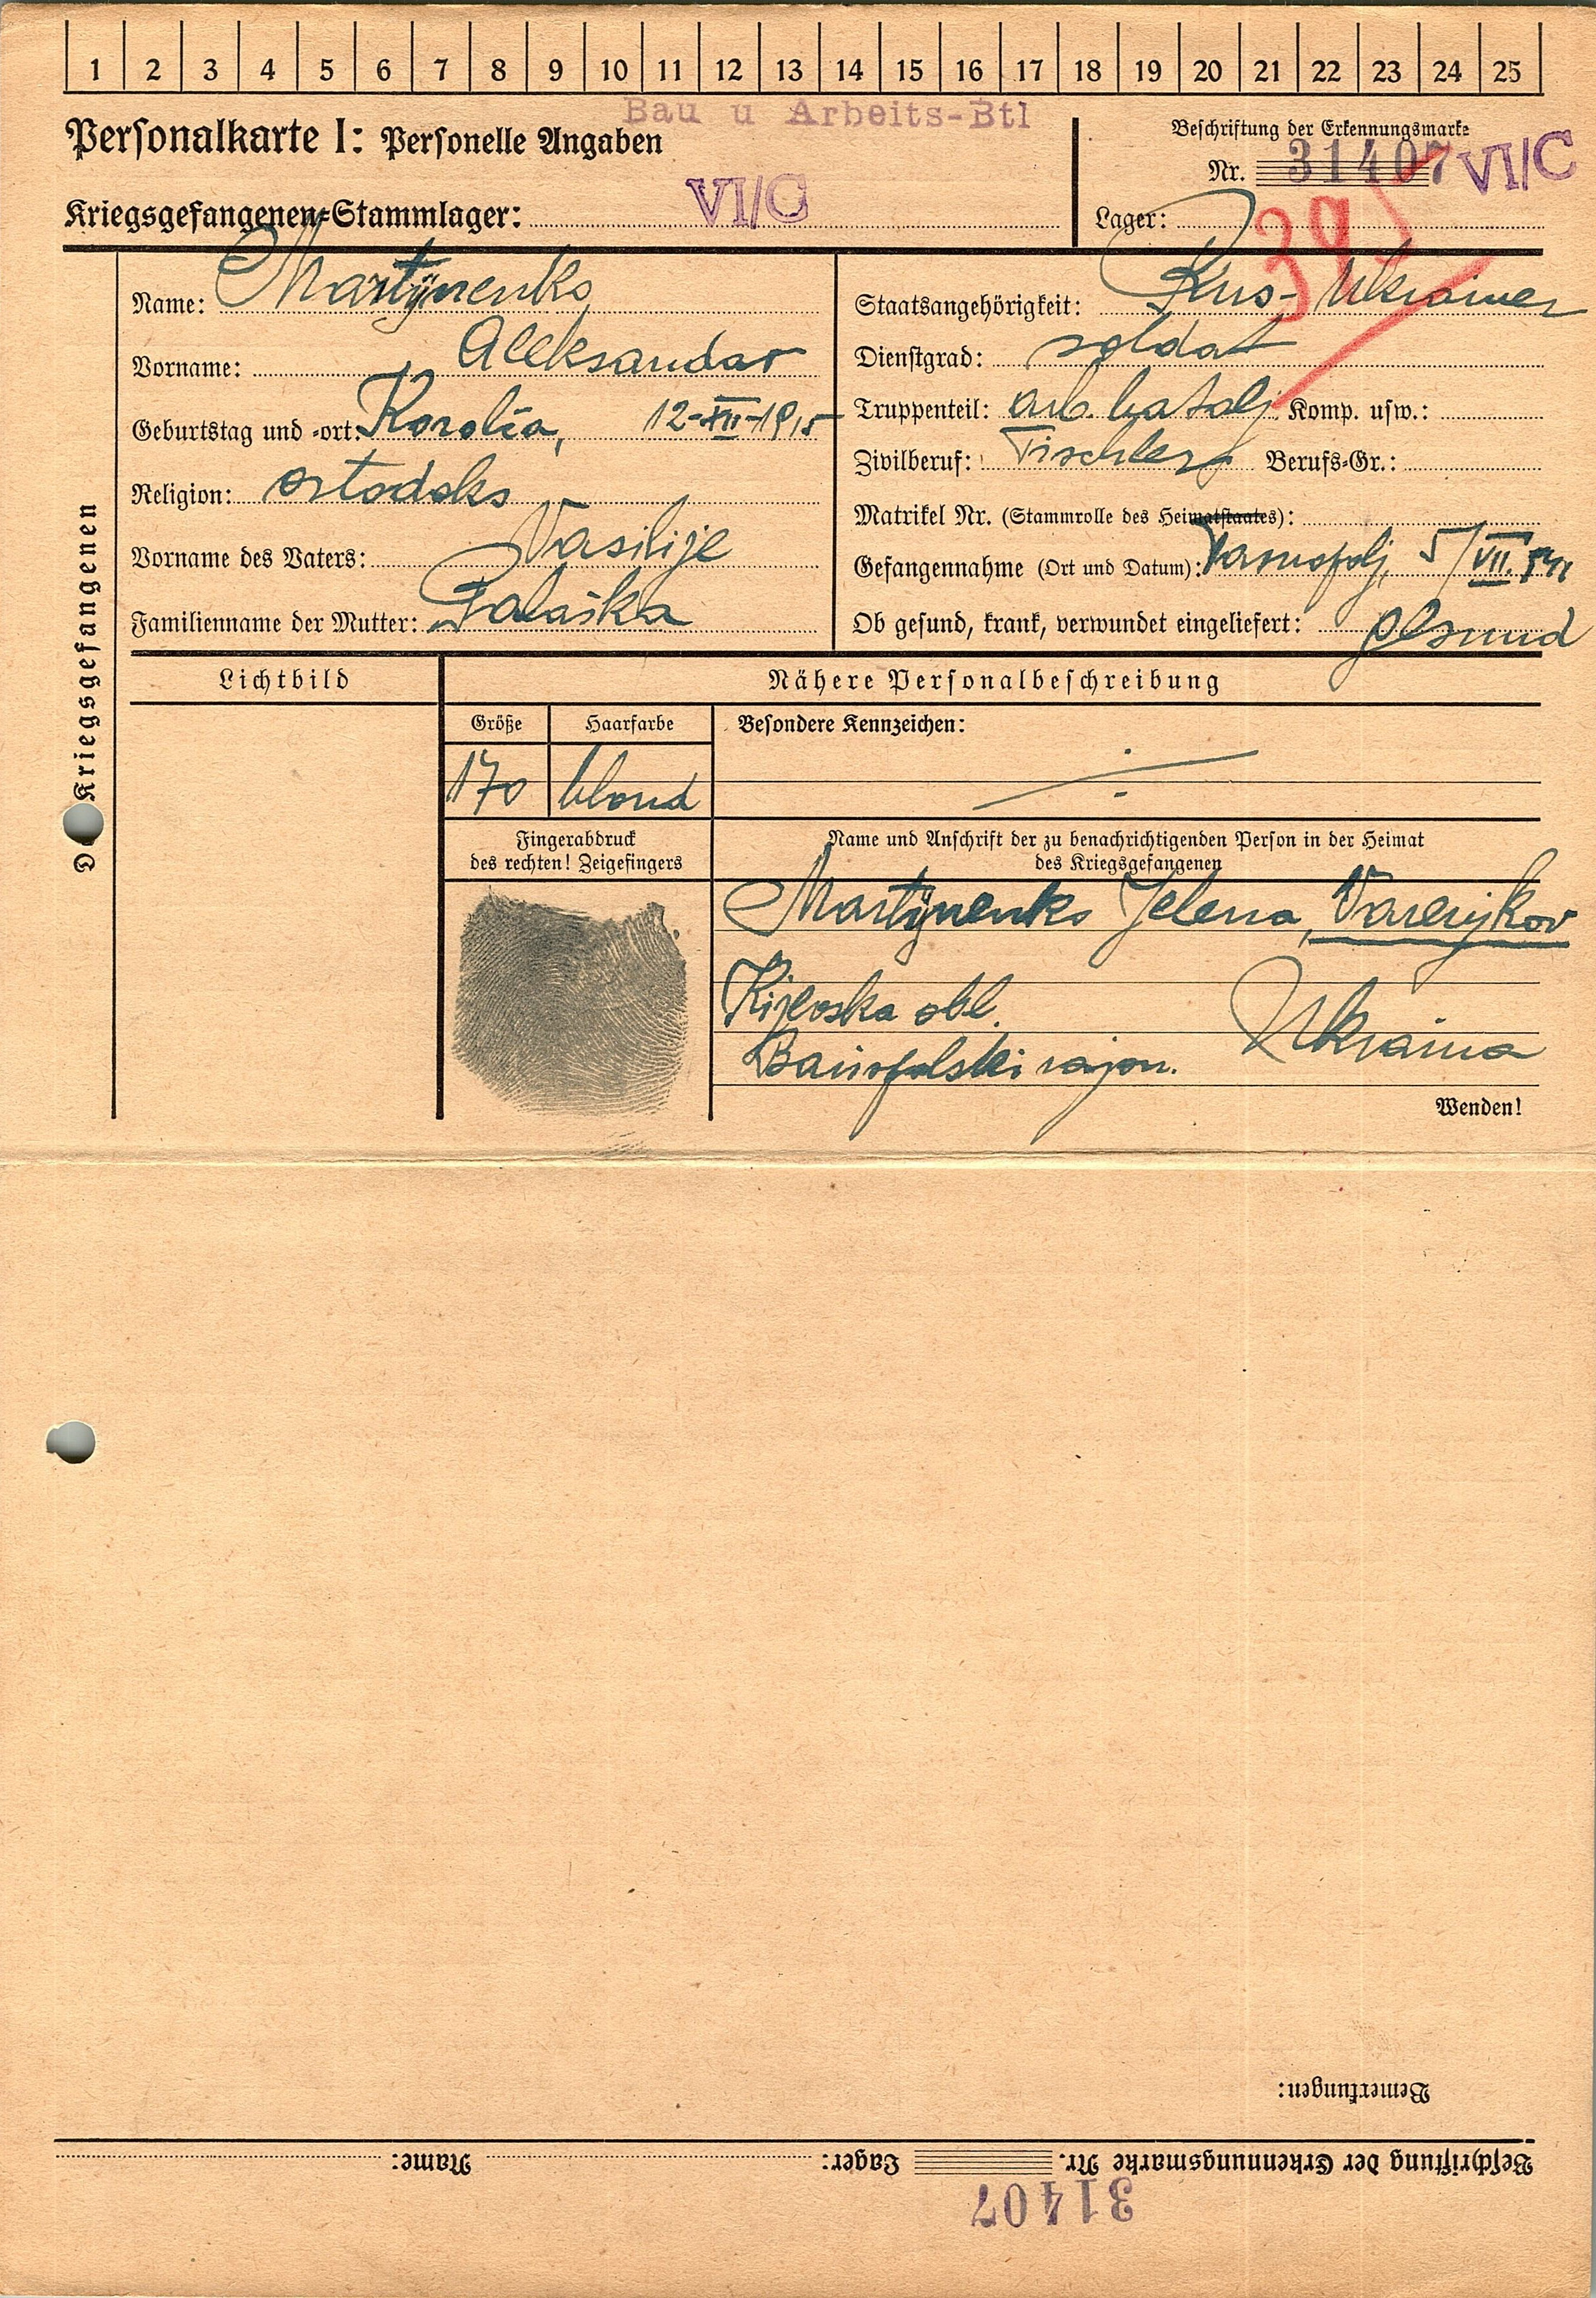 1 2 3 4 5 6 7 8 9 10 11 12 13 14 15 16 17 18 19 20 21 22 23 24 25
Bau u Arbeits-Btl
Personalkarte I: Personelle Angaben
Beschriftung der Erkennungsmarke
Nr. 31407 VI/C
Kriegsgefangenen-Stammlager: VI/C
Lager:
39
Des Kriegsgefangenen
Name: Martijnenko
Vorname: Aleksandar
Geburtstag und -ort: 12-XII-1915
Religion: ortodoks
Vorname des Vaters: Vasilije
Familienname der Mutter: Palaška
Staatsangehörigkeit: Rus-Ukrainer
Dienstgrad: soldat
Truppenteil: arb. batalj Komp. usw.:
Zivilberuf: Tischler Berufs-Gr.:
Matrikel Nr. (Stammrolle des Heimatstaates):
Gefangennahme (Ort und Datum): Tarnopolj, 5/VII. 941
Ob gesund, krank, verwundet eingeliefert: gesund
Lichtbild
Nähere Personalbeschreibung
Größe Haarfarbe Besondere Kennzeichen:
170 blond
Fingerabdruck
des rechten! Zeigefingers
Name und Anschrift der zu benachrichtigenden Person in der Heimat
des Kriegsgefangenen
Martijnenko Jelena,
Kijevska obl. Ukraina
rajon.
Wenden!
Bemerkungen:
Beschriftung der Erkennungsmarke Nr. Lager: Name:
31407